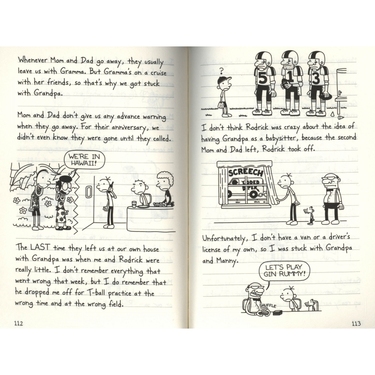 Whenever Mom and Dad go away, they usually
leave us with Gramma. But Gramma's on a cruise
with her friends, so that's why we got stuck
with Grandpa.
Mom and Dad don't give us any advance warning
when they go away. For their anniversary, we
didn't even know they were gone until they called.
WE'RE IN
HAWAII!
The LAST time they left us at our own house
with Grandpa was when me and Rodrick were
really little. I don't remember everything that
went wrong that week, but I do remember that
he dropped me off for T-ball practice at the
wrong time and at the wrong field.
112
5
1
3
I don't think Rodrick was crazy about the idea of
having Grandpa as a babysitter, because the second
Mom and Dad left, Rodrick took off.
SCREECH
Unfortunately, I don't have a van or a driver's
license of my own, so I was stuck with Grandpa
and Manny.
LET'S PLAY
GIN RUMMY!
113